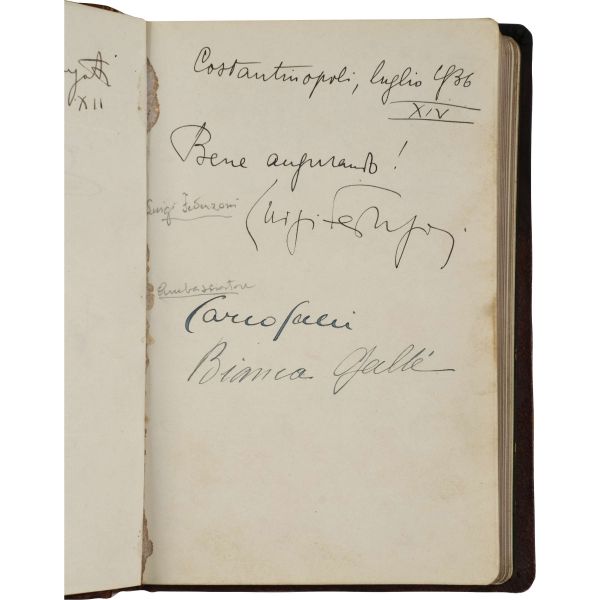 XII
Costantinopoli, luglio 1936
XIV
Bene augurando!
Luigi Federzoni
Luigi Federzoni
Ambasciatore
Carlo Galli
Bianca Gallé